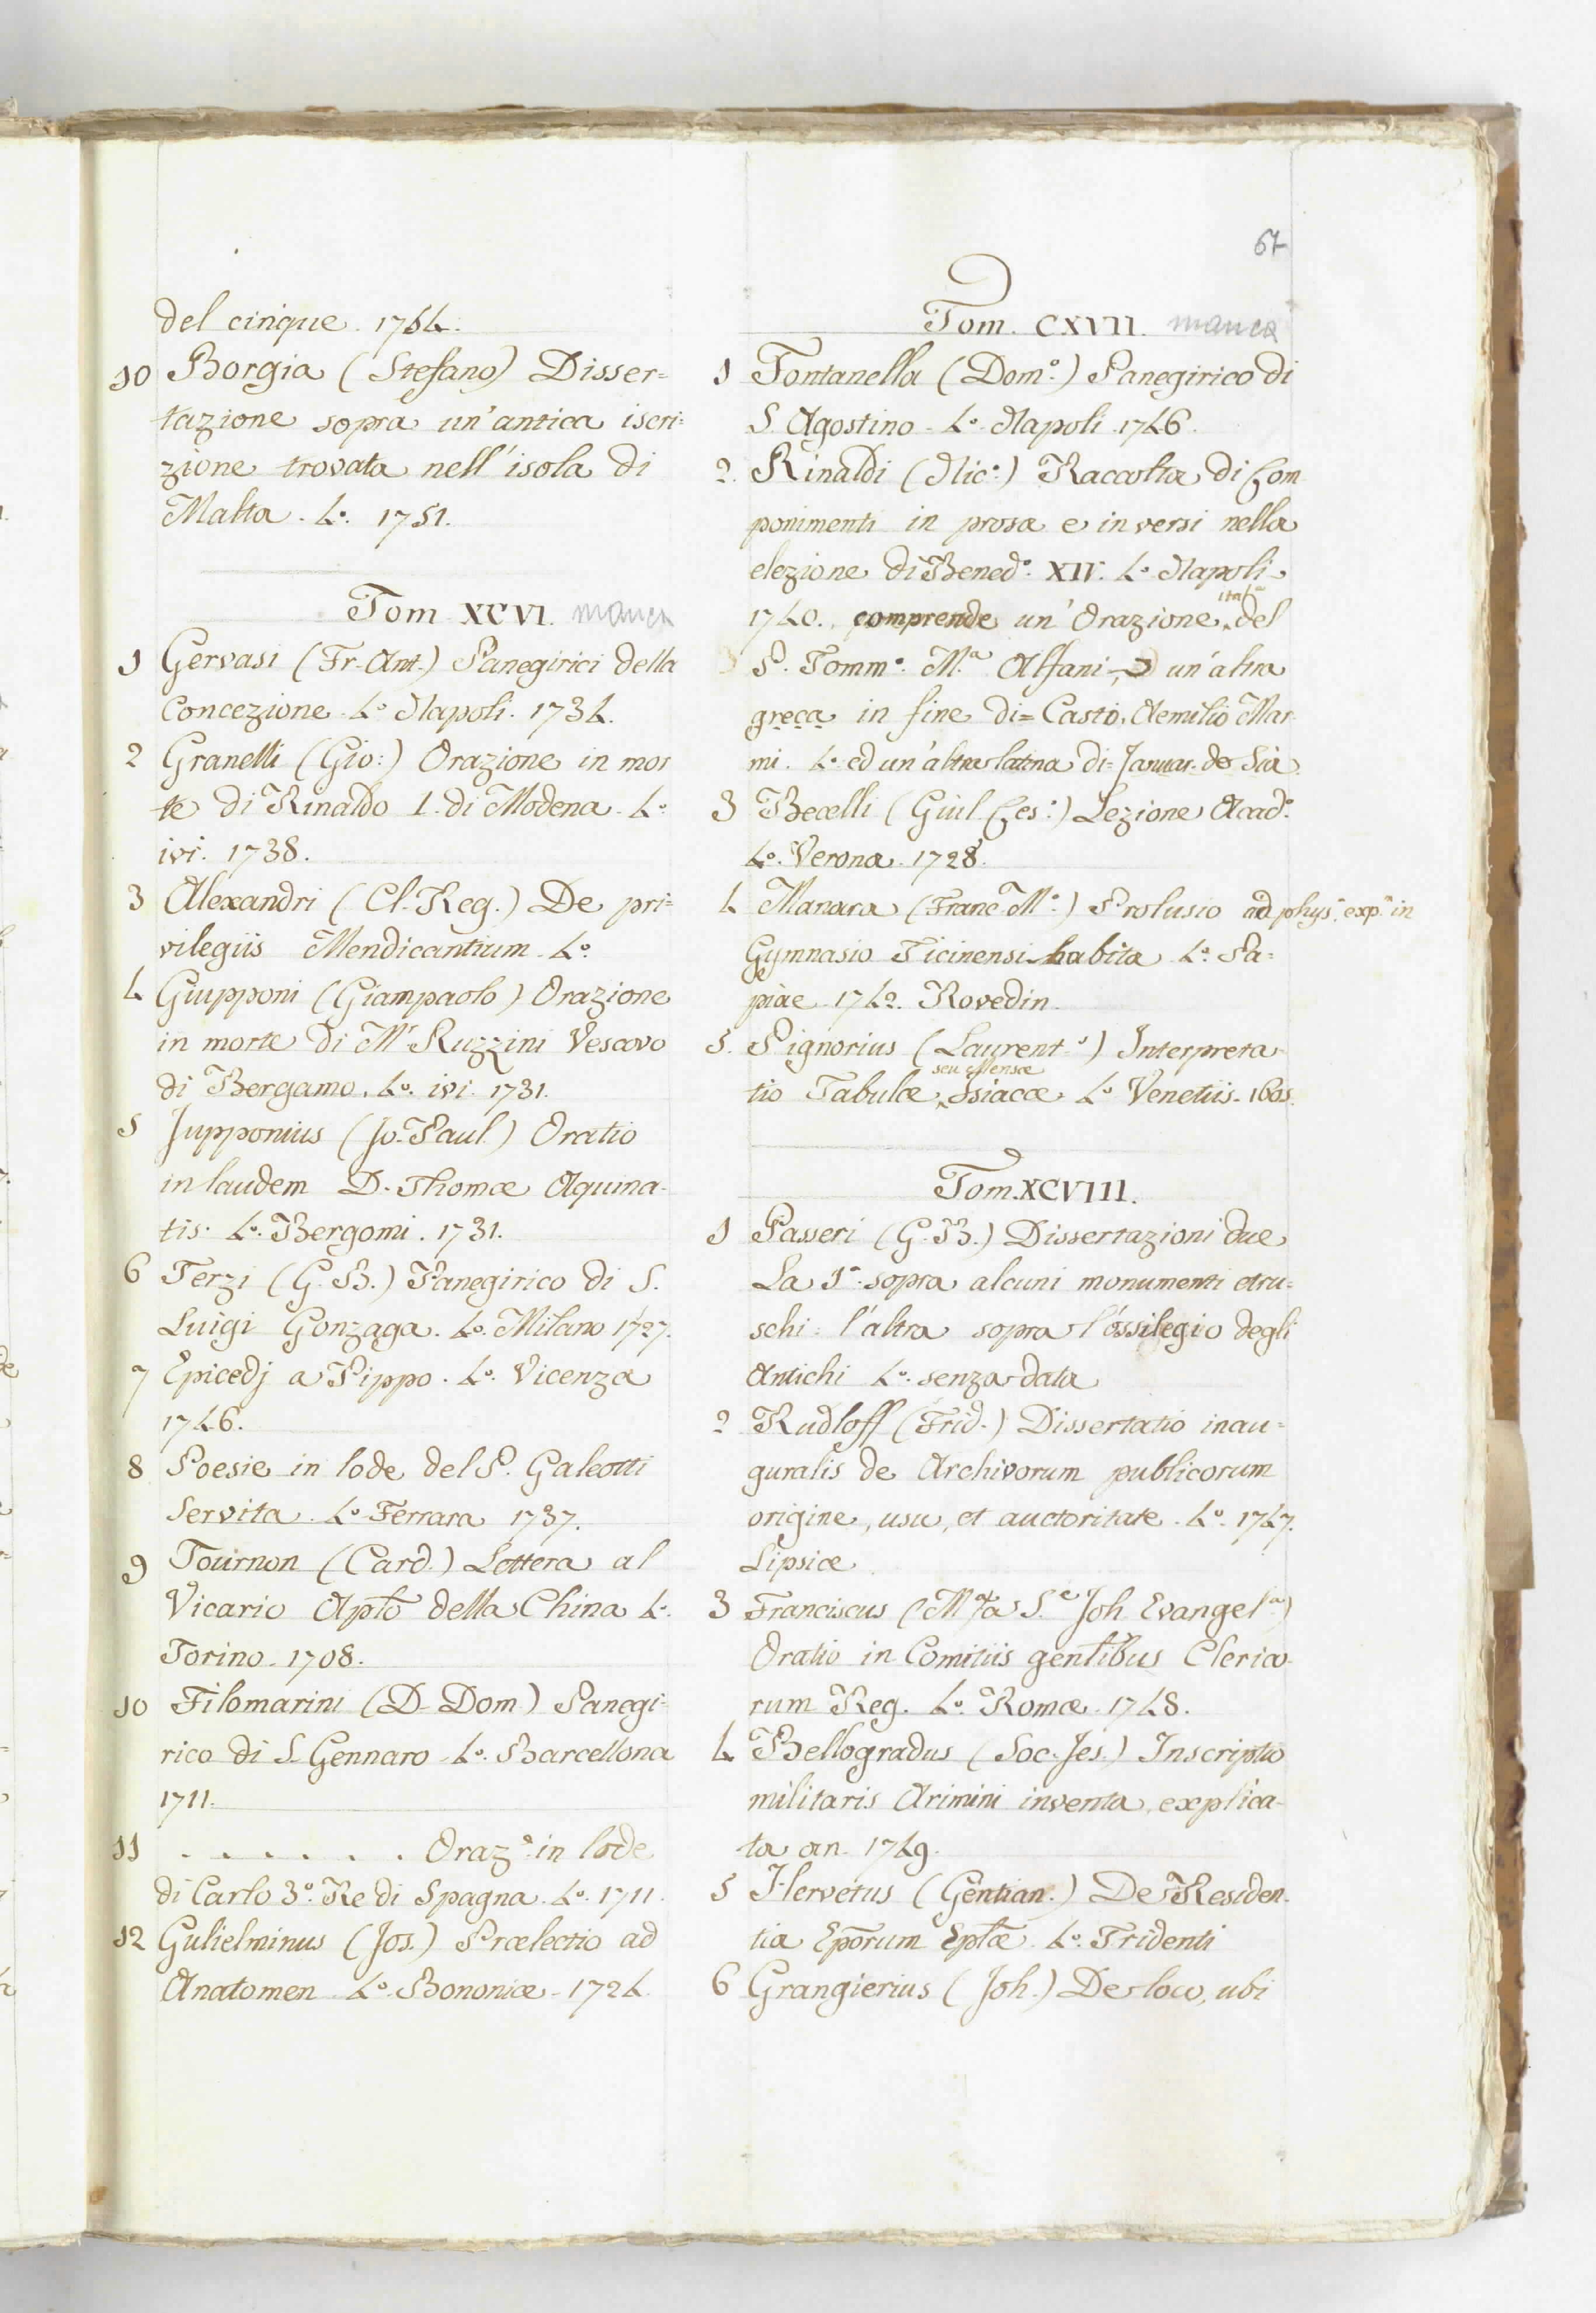 67
del cinque. 1754.
10 Borgia (Stefano) Disser=
tazione sopra un'antica iscri=
zione trovata nell'isola di
Malta. 4.º 1751.
Tom XCVI. manca
1 Gervasi (Fr. Ant.) Panegirici della
Concezione 4.º Napoli. 1734.
2 Granelli (Gio:) Orazione in mor
te di Rinaldo I. di Modena. 4.º
ivi. 1738.
3 Alexandri (Cl. Reg.) De pri=
vilegiis Mendicantium. 4.º
4 Giupponi (Giampaolo) Orazione
in morte di M.r Ruzzini Vescovo
di Bergamo. 4.º ivi. 1731.
5 Jupponius (Jo. Paul.) Oratio
in laudem D. Thomæ Aquina-
tis. 4.º Bergomi. 1731.
6 Terzi (G. B.) Panegirico di S.
Luigi Gonzaga. 4.º Milano 1727.
7 Epicedj a Pippo. 4.º Vicenza
1746.
8 Poesie in lode del P. Galeotti
Servita. 4.º Ferrara 1737.
9 Tournon (Card.) Lettera al
Vicario Aplo della China 4.º
Torino. 1708.
10 Filomarini (D. Dom.) Panegi-
rico di S. Gennaro 4.º Barcellona
1711.
11 . . . . . . Oraz.e in lode
di Carlo 3.º Re di Spagna. 4.º 1711.
12 Gulielminus (Jos.) Prælectio ad
Anatomen 4.º Bononiæ. 1724.
Tom. CXVII. manca
1 Fontanella (Dom.º) Panegirico di
S. Agostino. 4.º Napoli. 1746.
2. Rinaldi (Nic.º) Raccolta di Com
ponimenti in prosa e in versi nella
elezione di Bened.º XIV. 4.º Napoli
1740. comprende un'Orazione ital.a del
P. Tomm.º M.a Alfani un'altra
greca in fine di= Casto, Aemilio Mar-
mi. 4.º ed un'altra latina di= Januar. de Sia
3 Becelli (Giul. Ces.e) Lezione Acad.e
4.º Verona. 1728.
4 Manara (Franc. M.a) Prolusio ad phys. exp. in
Gymnasio Ticinensi habita 4.º Pa=
piae. 1742. Rovedin.
5. Pignorius (Laurent.s) Interpreta-
tio Tabulæ seu Mensæ Isiacæ. 4.º Venetiis. 1605.
Tom. XCVIII.
1 Passeri (G. B.) Dissertazioni due
La 1.a sopra alcuni monumenti etru=
schi: l'altra sopra l'ossilegio degli
Antichi 4.º senza data
2 Rudloff (Frid.) Dissertatio inau=
guralis de Archivorum publicorum
origine, usu, et auctoritate. 4.º 1747.
Lipsiæ
3 Franciscus (M. a S.e Joh Evangel.a)
Oratio in Comitiis gentibus Clerico-
rum Reg. 4.º Romæ. 1748.
4 Bellogradus (Soc. Jes.) Inscriptio
militaris Arimini inventa, explica-
ta an. 1749.
5 Hervetus (Gentian.) De Residen-
tia Eporum Eplæ 4.º Tridenti
6 Grangierius (Joh.) De loco, ubi